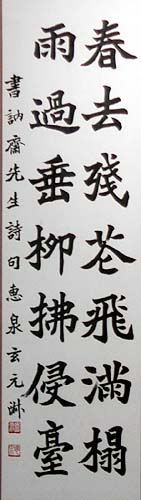 春去殘花飛滿榻
雨過垂柳拂侵臺
書訥齋先生詩句惠泉玄元